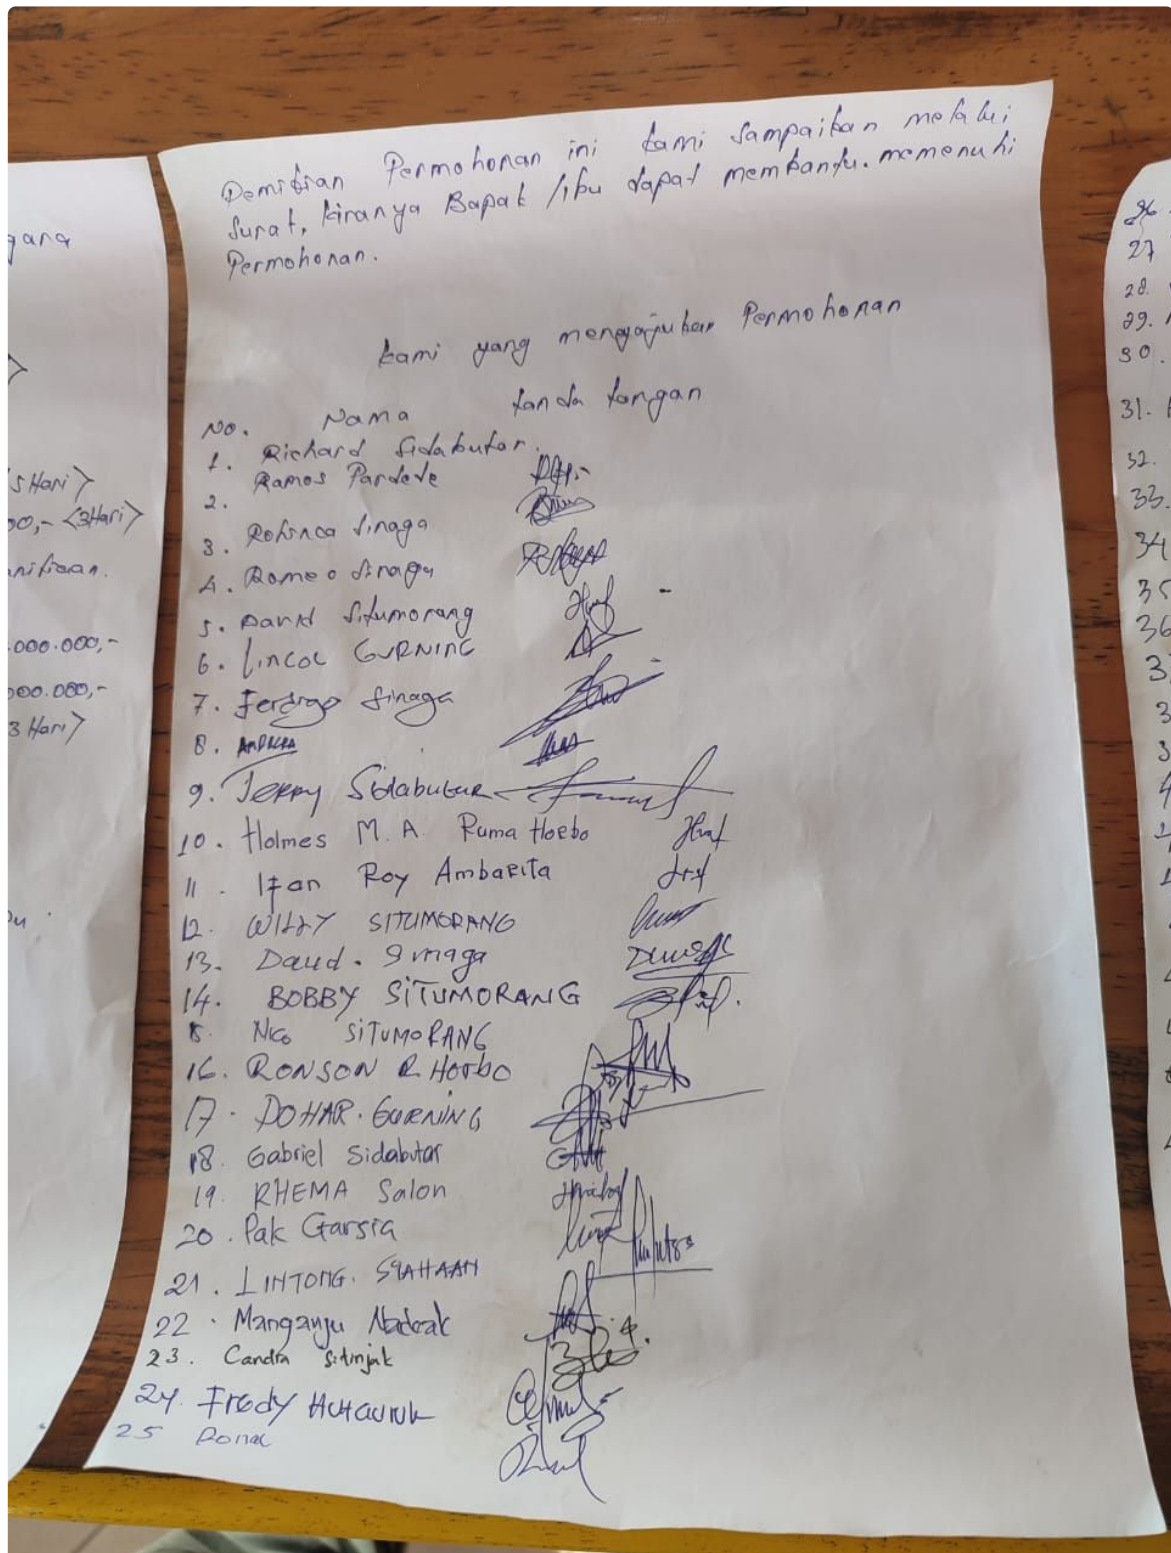 Demikian Permohonan ini kami sampaikan melalui
surat, kiranya Bapak/ibu dapat membantu. memenuhi
Permohonan.
kami yang mengajukan Permohonan
No. Nama tanda tangan
1. Richard Sidabutar.
2. Ramos Pardede
3. Rohinca Sinaga
4. Romeo Sinaga
5. David Situmorang
6. LINCOL GURNING
7. Ferdigo Sinaga
8.
9. Jerry Sidabutar
10. Holmes M. A. Ruma Horbo
11. Ifan Roy Ambarita
12. WILLY SITUMORANG
13. Daud. Sinaga
14. BOBBY SITUMORANG
15. Nico SITUMORANG
16. RONSON R. Horbo
17. DOHAR. GURNING
18. Gabriel Sidabutar
19. RHEMA Salon
20. Pak Garsia
21. LINTONG. SIAHAAN
22. Manganju Nadeak
23. Candra Sitinjak
24. Fredy Hutauruk
25
gana
5 Hari>
00,- <3Hari>
.000.000,-
000.000,-
3 Hari>
26.
27
28.
29.
30.
31.
32.
33.
34
35
36